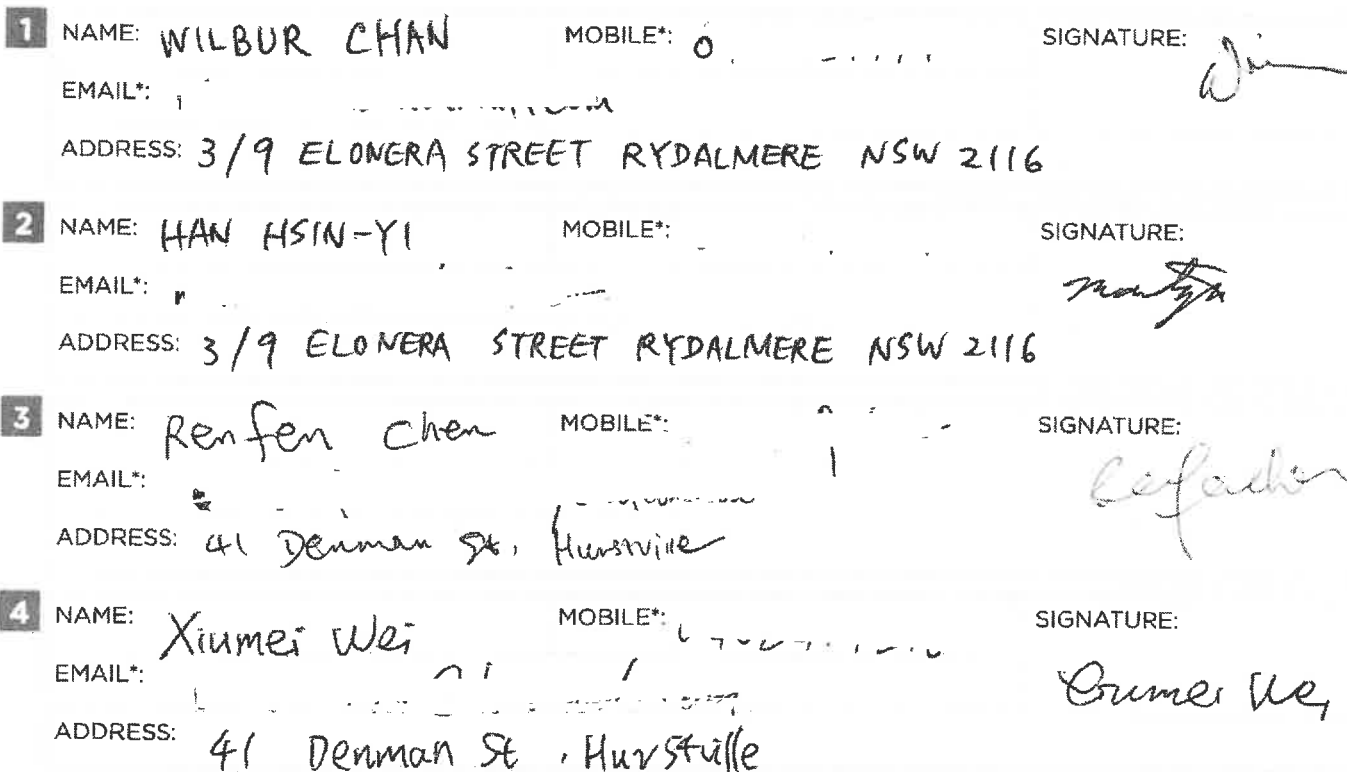 1 NAME: WILBUR CHAN MOBILE*: SIGNATURE:
EMAIL*:
ADDRESS: 3/9 ELONERA STREET RYDALMERE NSW 2116
2 NAME: HAN HSIN-YI MOBILE*: SIGNATURE:
EMAIL*:
ADDRESS: 3/9 ELONERA STREET RYDALMERE NSW 2116
3 NAME: Renfen Chen MOBILE*: SIGNATURE:
EMAIL*:
ADDRESS: 41 Denman St, Hurstville
4 NAME: Xiumei Wei MOBILE*: SIGNATURE:
EMAIL*:
ADDRESS: 41 Denman St, Hurstville